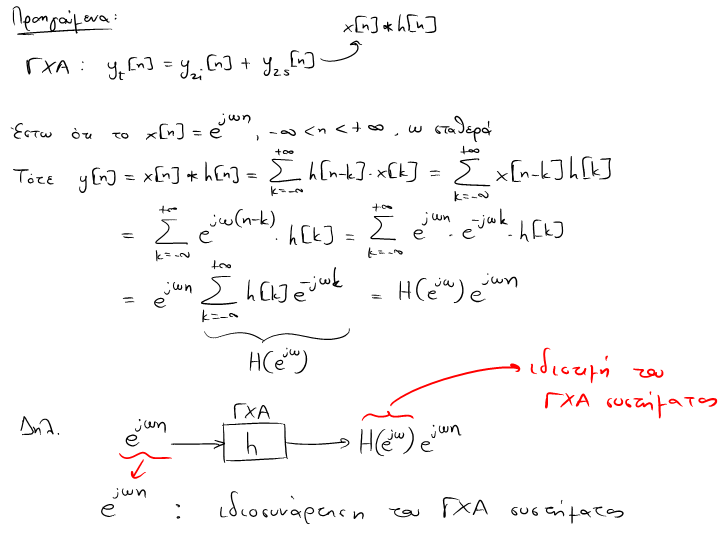 Προηγούμενα:
x[n]*h[n]
ΓΧΑ: y_t[n] = y_{zi}[n] + y_{zs}[n]
Έστω ότι το x[n] = e^{jωn}, -∞ < n < +∞, ω σταθερά
Τότε y[n] = x[n]*h[n] = \sum_{k=-∞}^{+∞} h[n-k]·x[k] = \sum_{k=-∞}^{+∞} x[n-k]h[k]
= \sum_{k=-∞}^{+∞} e^{jω(n-k)}·h[k] = \sum_{k=-∞}^{+∞} e^{jωn}·e^{-jωk}·h[k]
= e^{jωn} \sum_{k=-∞}^{+∞} h[k]e^{-jωk} = H(e^{jω})e^{jωn}
H(e^{jω})
ιδιοτιμή του
ΓΧΑ συστήματος
ΓΧΑ
Δηλ. e^{jωn} h H(e^{jω})e^{jωn}
e^{jωn} : ιδιοσυνάρτηση του ΓΧΑ συστήματος